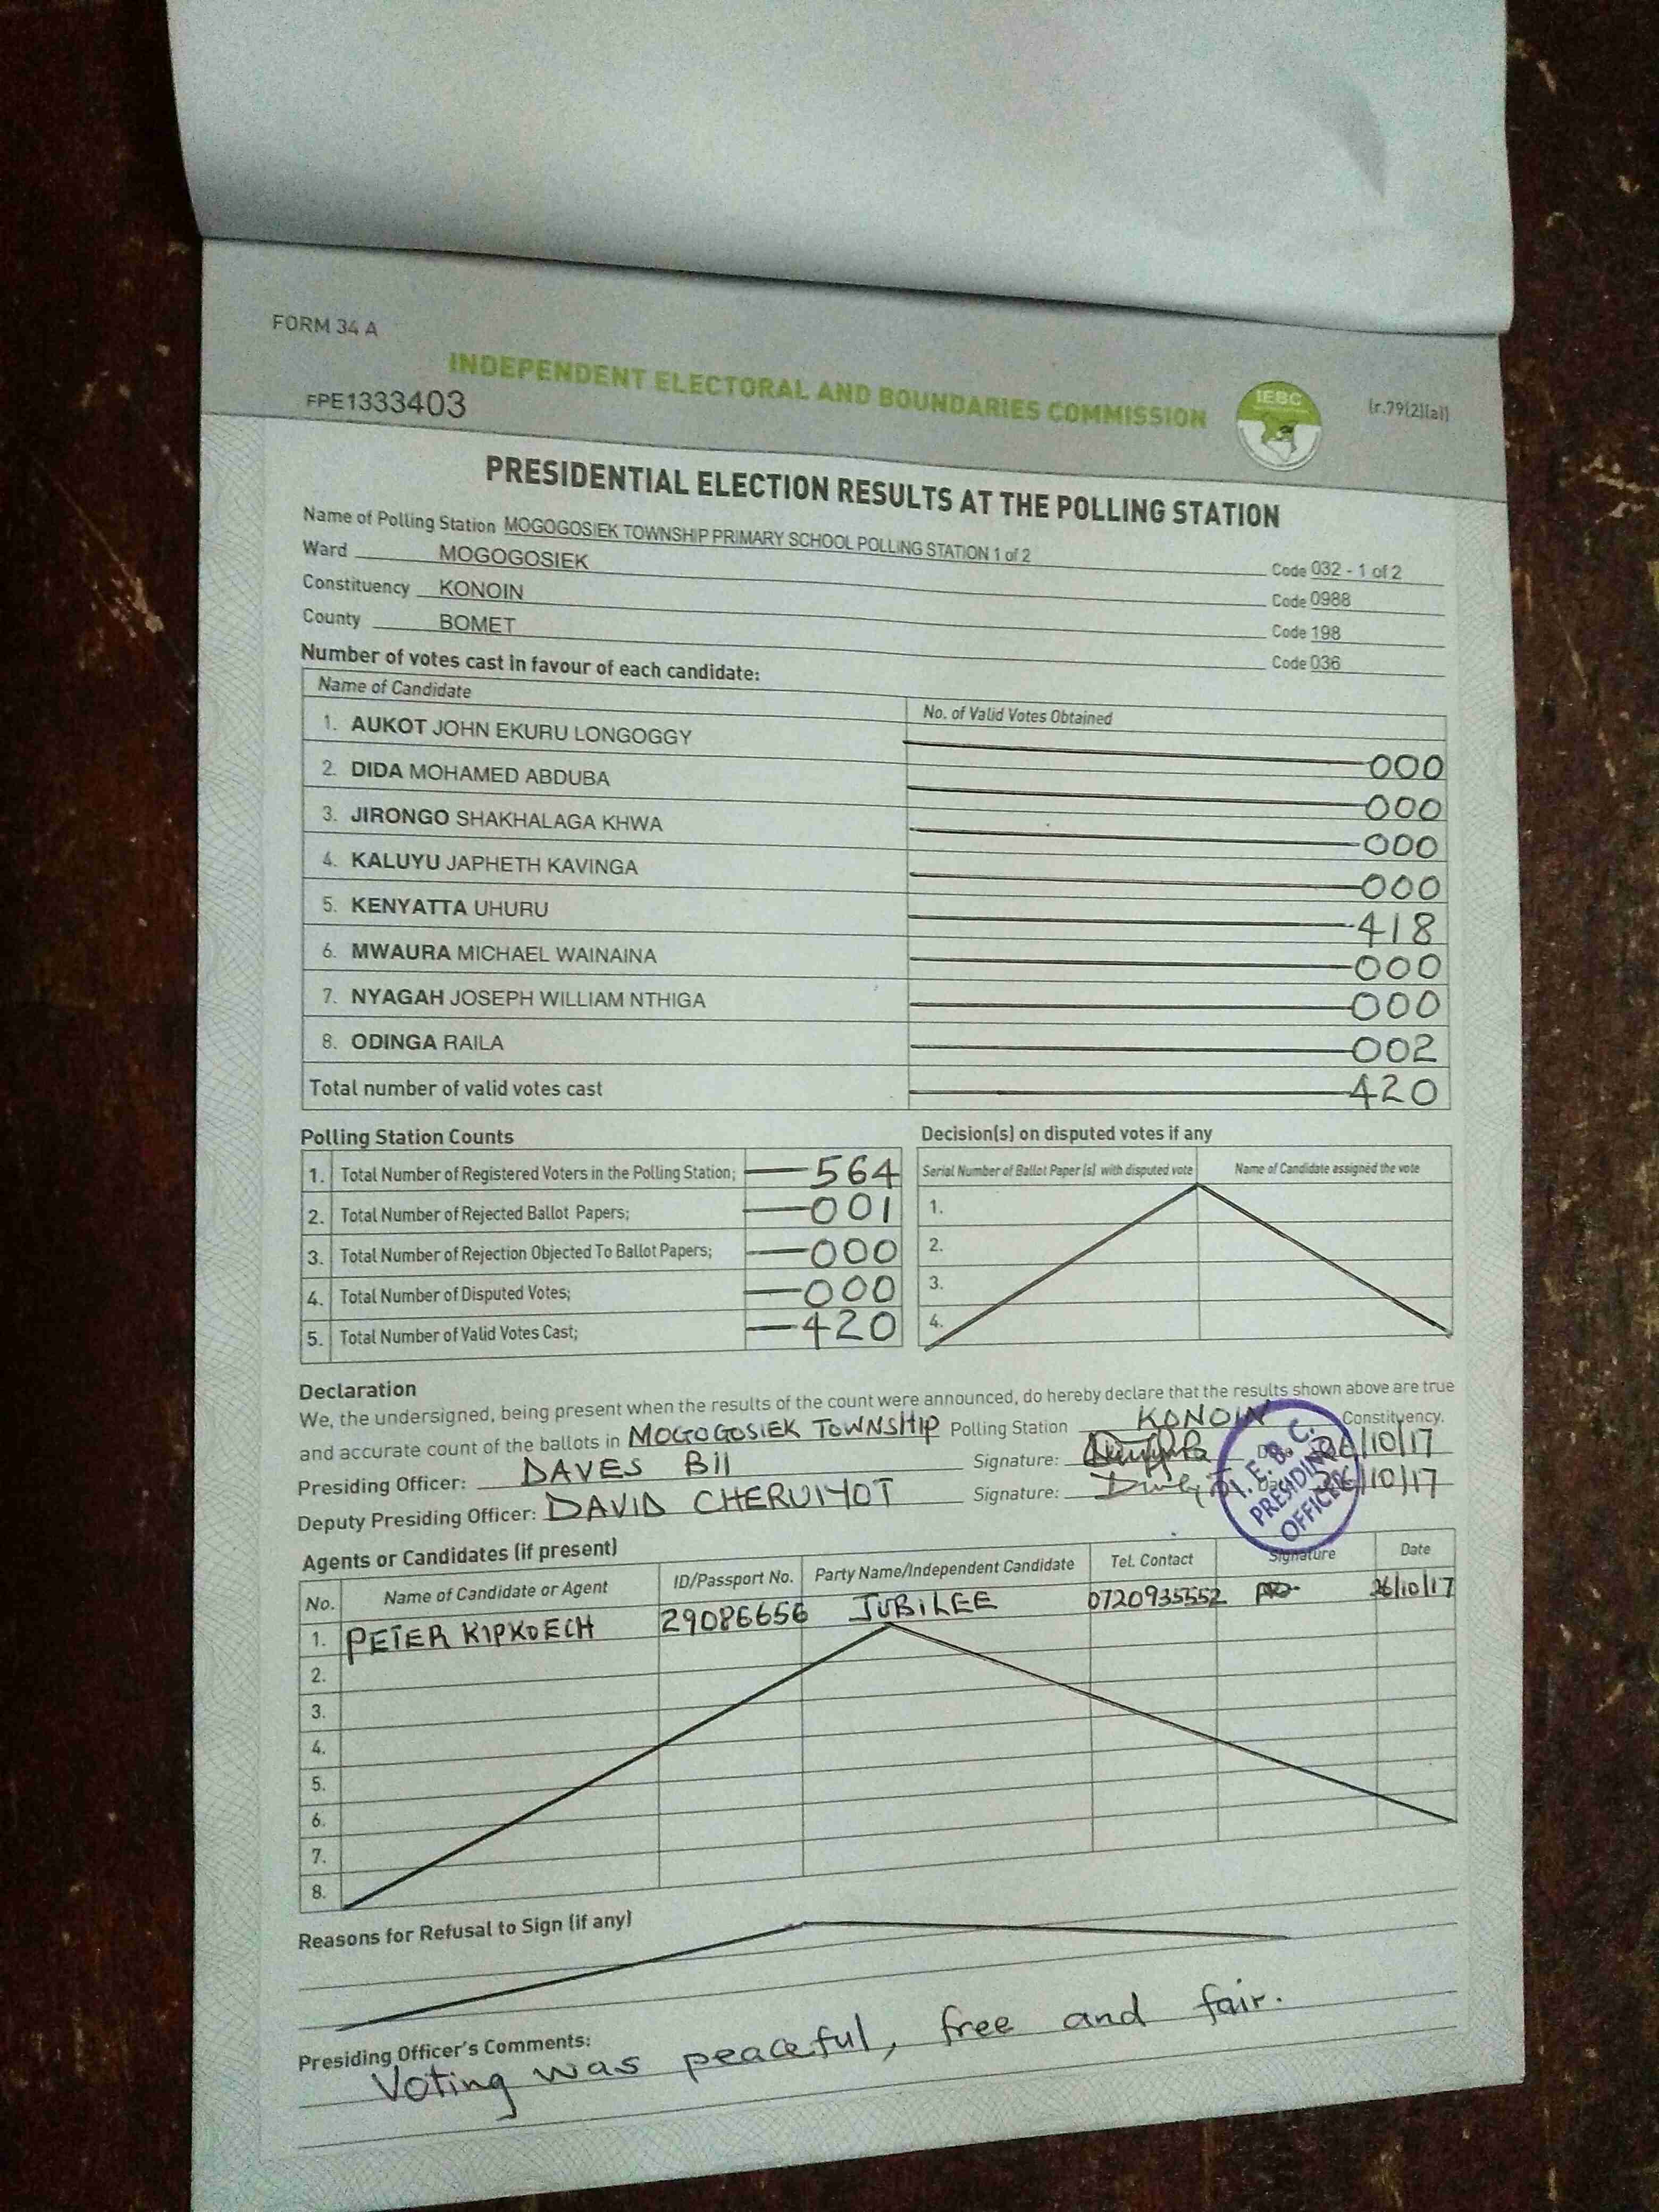 FORM 34 A
INDEPENDENT ELECTORAL AND BOUNDARIES COMMISSION
IEBC
(r.79(2)(a))
FPE1333403
PRESIDENTIAL ELECTION RESULTS AT THE POLLING STATION
Name of Polling Station MOGOGOSIEK TOWNSHIP PRIMARY SCHOOL POLLING STATION 1 of 2 Code 032 - 1 of 2
Ward MOGOGOSIEK Code 0988
Constituency KONOIN Code 198
County BOMET Code 036
Number of votes cast in favour of each candidate:
Name of Candidate No. of Valid Votes Obtained
1. AUKOT JOHN EKURU LONGOGGY 000
2. DIDA MOHAMED ABDUBA 000
3. JIRONGO SHAKHALAGA KHWA 000
4. KALUYU JAPHETH KAVINGA 000
5. KENYATTA UHURU 418
6. MWAURA MICHAEL WAINAINA 000
7. NYAGAH JOSEPH WILLIAM NTHIGA 000
8. ODINGA RAILA 002
Total number of valid votes cast 420
Polling Station Counts
1. Total Number of Registered Voters in the Polling Station; 564
2. Total Number of Rejected Ballot Papers; 001
3. Total Number of Rejection Objected To Ballot Papers; 000
4. Total Number of Disputed Votes; 000
5. Total Number of Valid Votes Cast; 420
Decision(s) on disputed votes if any
Serial Number of Ballot Paper (s) with disputed vote Name of Candidate assigned the vote
1.
2.
3.
4.
Declaration
We, the undersigned, being present when the results of the count were announced, do hereby declare that the results shown above are true
and accurate count of the ballots in MOGOGOSIEK TOWNSHIP Polling Station KONOIN Constituency.
Presiding Officer: DAVES BII Signature: 26/10/17
Deputy Presiding Officer: DAVID CHERUIYOT Signature: 26/10/17
I. E. B. C.
PRESIDING
OFFICER
Agents or Candidates (if present)
No. Name of Candidate or Agent ID/Passport No. Party Name/Independent Candidate Tel. Contact Signature Date
1. PETER KIPKOECH 29086656 JUBILEE 0720935552 26/10/17
2.
3.
4.
5.
6.
7.
8.
Reasons for Refusal to Sign (if any)
Presiding Officer's Comments:
Voting was peaceful, free and fair.